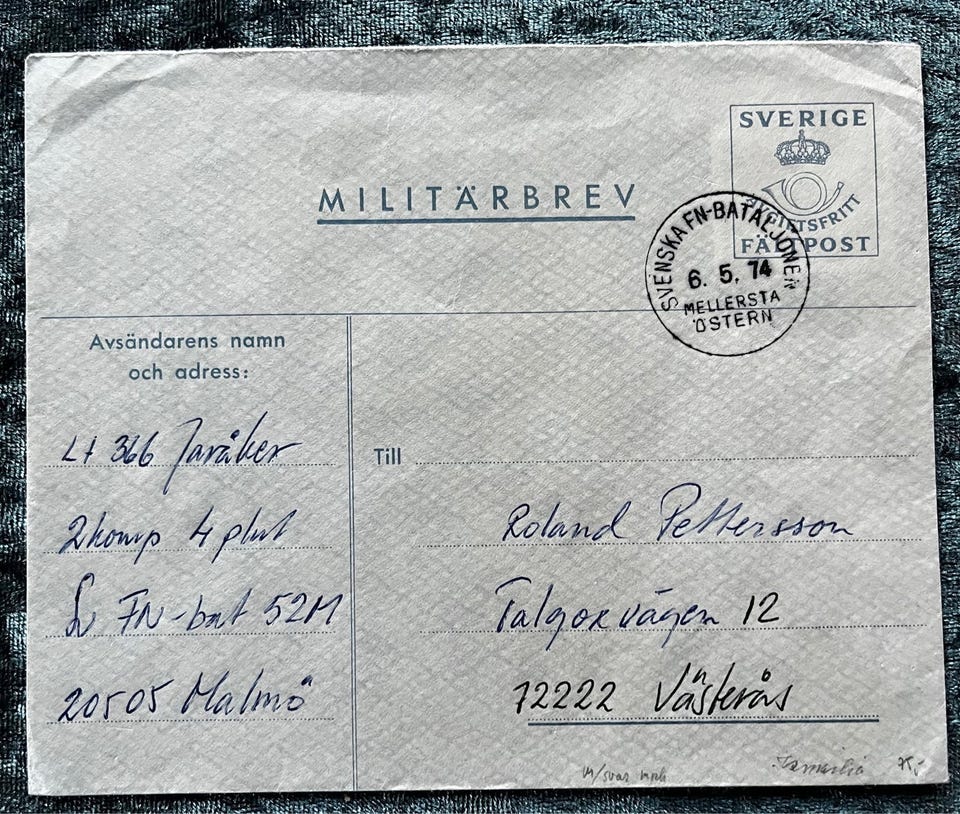 SVERIGE
AVGIFTSFRITT
FÄLTPOST
MILITÄRBREV
SVENSKA FN-BATALJONEN
6. 5. 74
MELLERSTA
ÖSTERN
Avsändarens namn
och adress:
Lt 366 Jaråker
2komp 4 plut
Sv FN-bat 52M
20505 Malmö
Till
Roland Pettersson
Talgoxvägen 12
72222 Västerås
m/svar
Ismailia 75,-